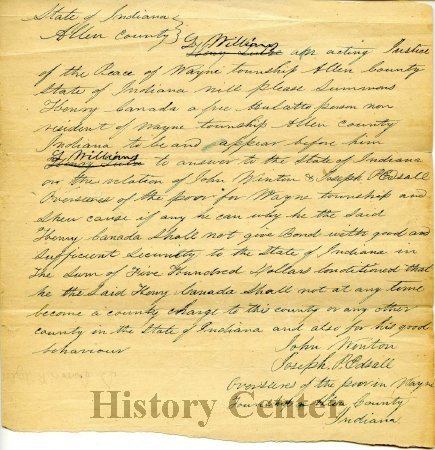 State of Indiana }
Allen County }
L Williams
Henry an acting Justice
of the Peace of Wayne township Allen County
State of Indiana will please Summons
Henry Canada a free Mulatto person now
resident of Wayne township Allen County
Indiana to be and appear before him
L Williams
Henry to answer to the State of Indiana
on the relation of John Winton & Joseph P Edsall
Overseers of the poor for Wayne township and
Shew cause if any he can why he the Said
Henry Canada Shall not give Bond with good and
Sufficient Security to the State of Indiana in
The Sum of Five Houndred Dollars conditioned that
he the Said Henry Canada Shall not at any time
become a county charge to this county or any other
county in the State of Indiana and also for his good
behaviour
John Winton
Joseph P. Edsall
Overseers of the poor in Wayne
Allen County
Indiana
History Center